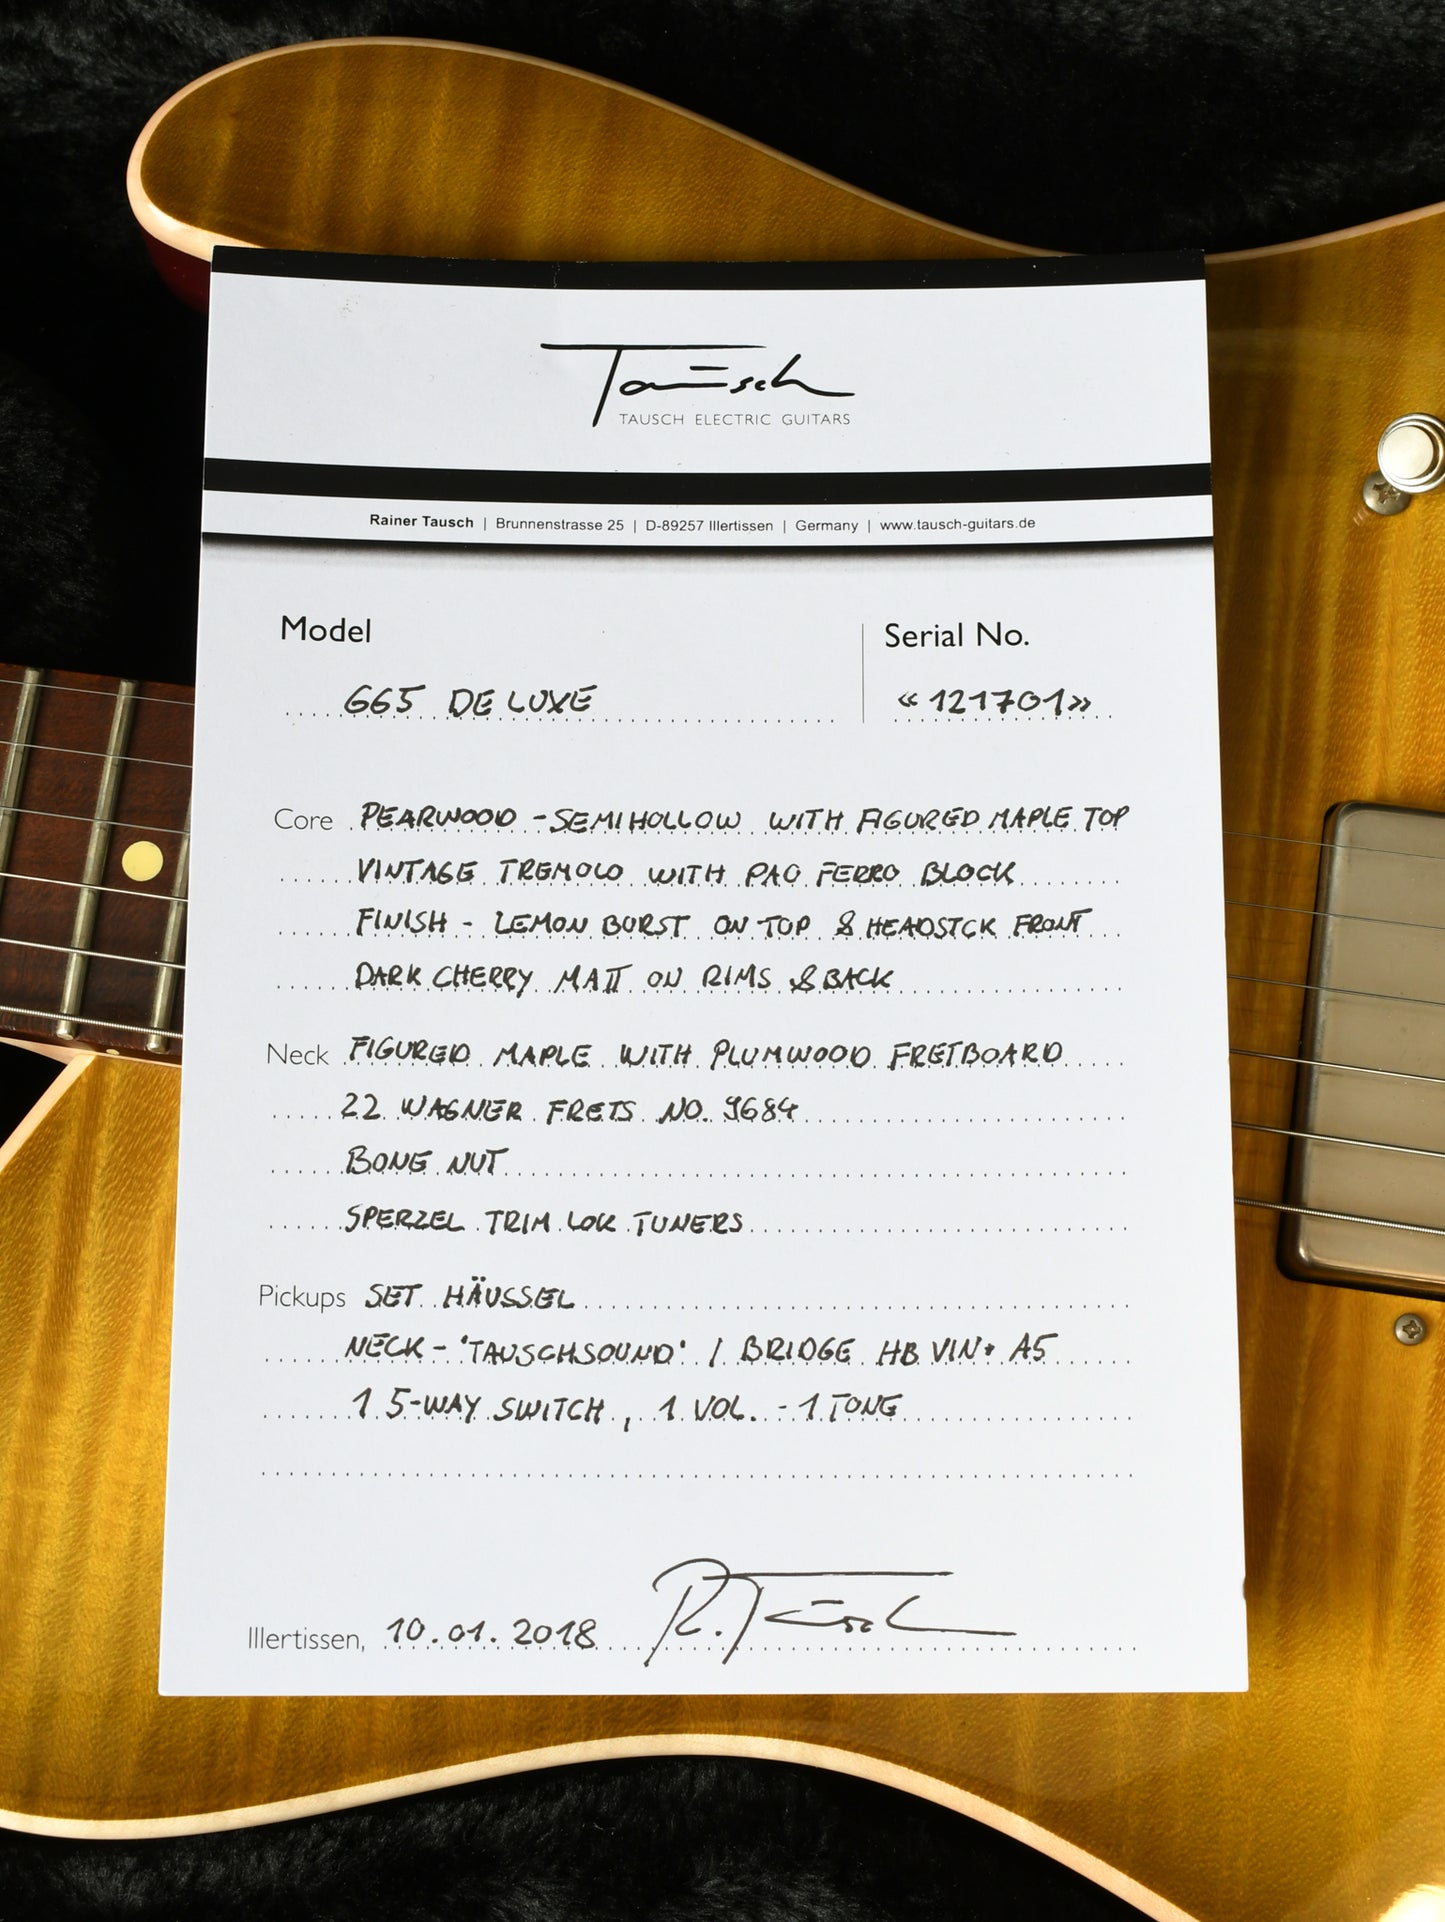 Tausch
TAUSCH ELECTRIC GUITARS
Rainer Tausch | Brunnenstrasse 25 | D-89257 Illertissen | Germany | www.tausch-guitars.de
Model
Serial No.
665 DE LUXE
«121701»
Core PEARWOOD - SEMIHOLLOW WITH FIGURED MAPLE TOP
VINTAGE TREMOLO WITH PAO FERRO BLOCK
FINISH - LEMON BURST ON TOP & HEADSTCK FRONT
DARK CHERRY MATT ON RIMS & BACK
Neck FIGURED MAPLE WITH PLUMWOOD FRETBOARD
22 WAGNER FRETS NO. 9684
BONE NUT
SPERZEL TRIM LOK TUNERS
Pickups SET HÄUSSEL
NECK - 'TAUSCHSOUND' / BRIDGE HB VIN+ A5
1 5-WAY SWITCH, 1 VOL. - 1 TONE
Illertissen, 10.01.2018 R. Tausch